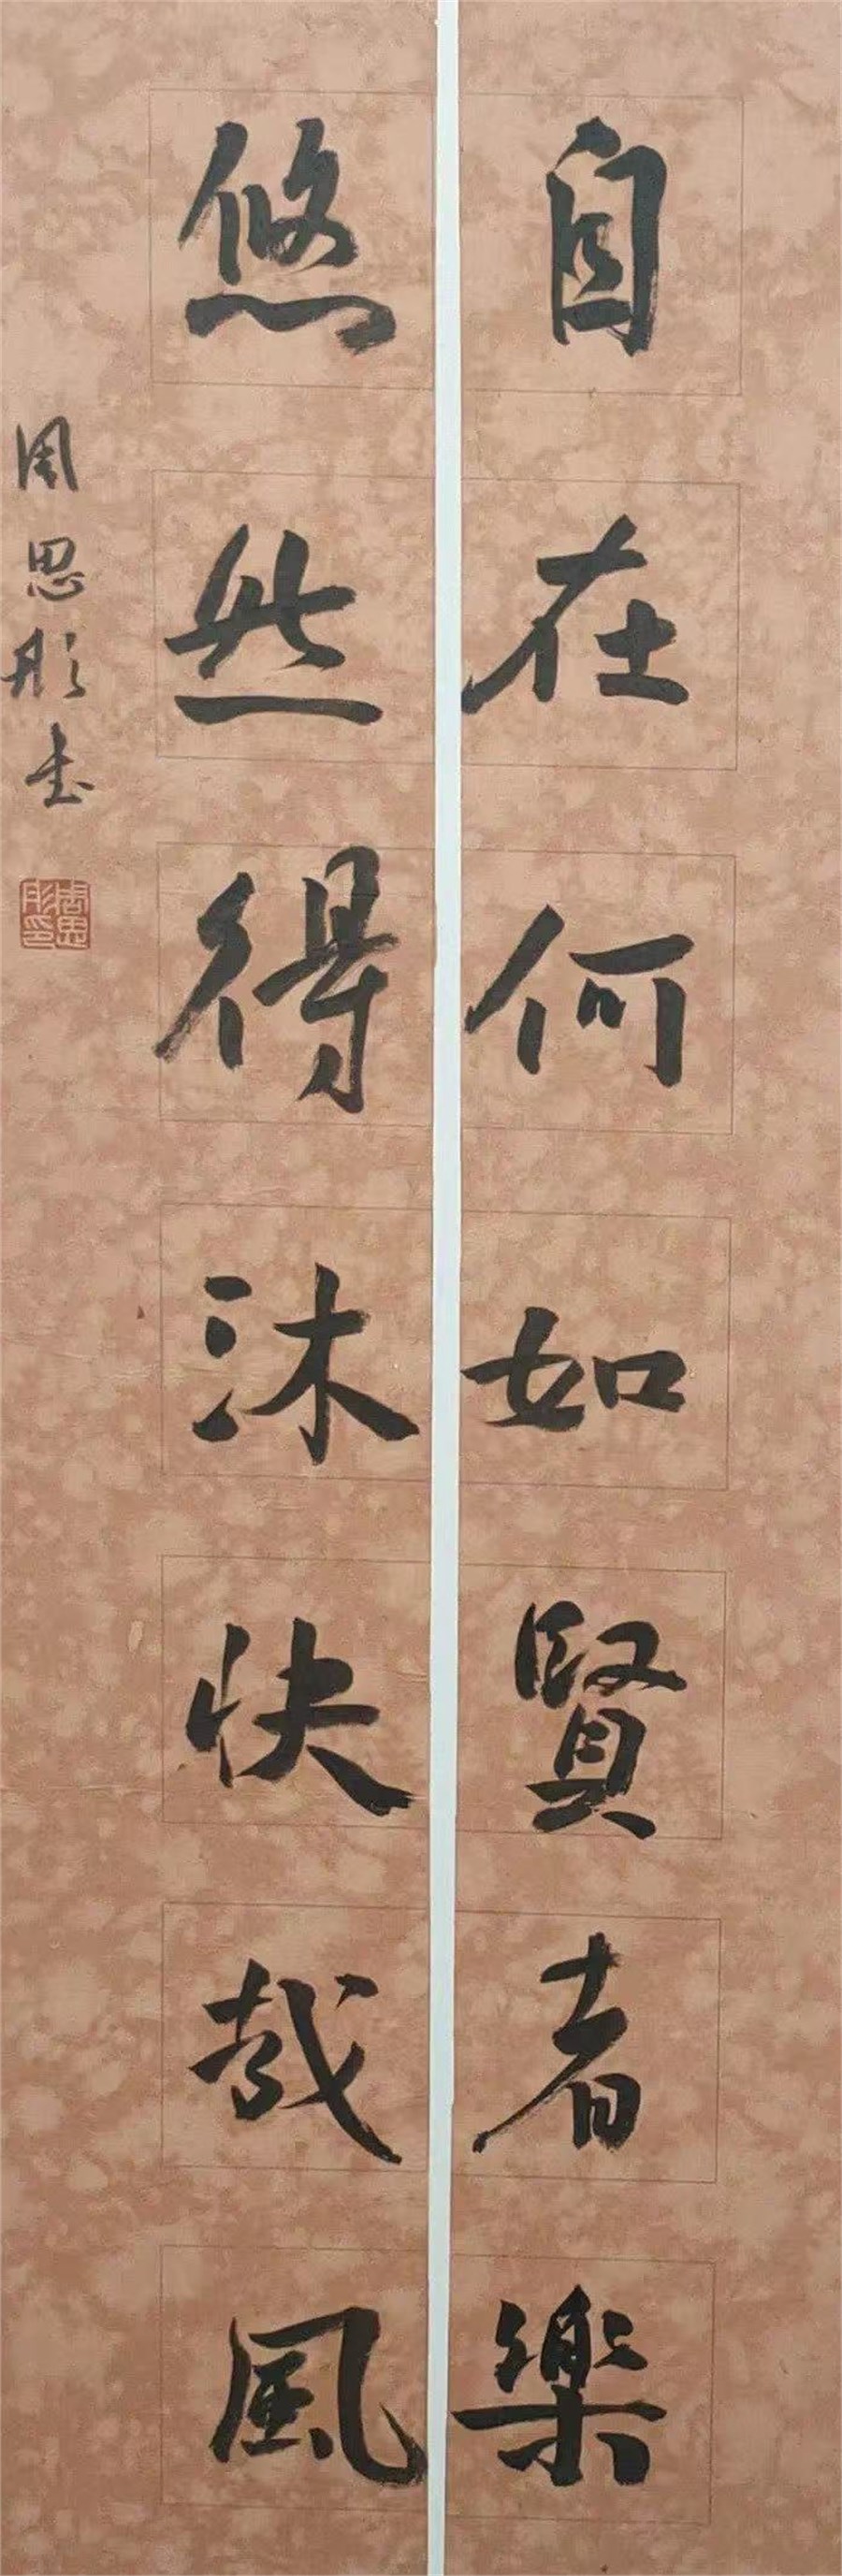 自在何如賢者樂
悠然得沐快哉風
周思彤书
周思彤印